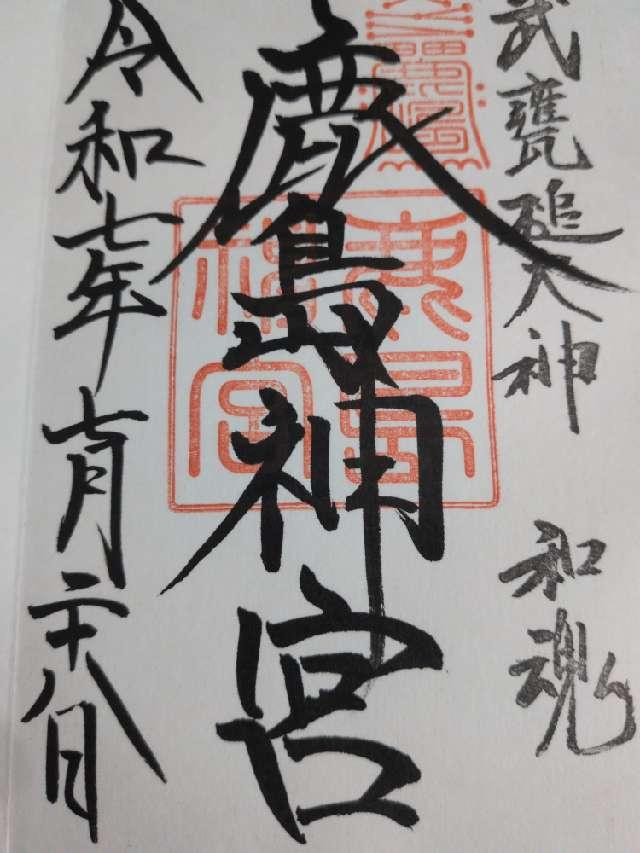 武甕槌大神 和魂
鹿島神宮
鹿島
神宮
令和七年七月二十八日